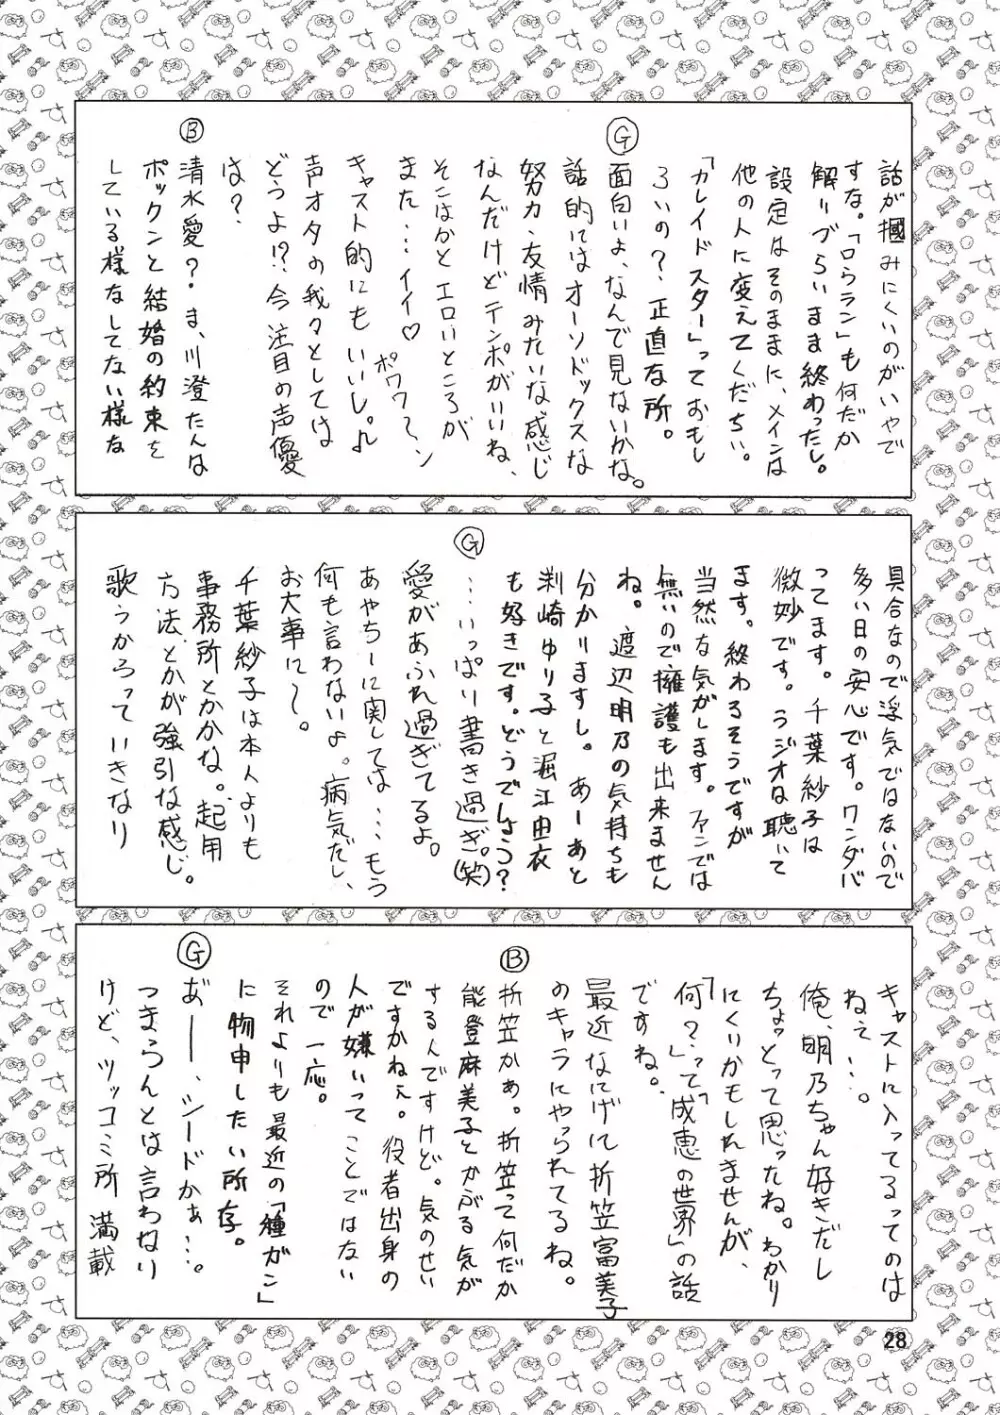 話が掴みにくいのがいやで
すな。「口うラン」も何だか
解りづらいまま終わったし。
設定はそのままに、メインは
他の人に変えてくだちい。
「カレイドスター」っておもし
ろいの？正直な所。
G 面白いよ、なんで見ないかな。
話的にはオーソドックスな
努力・友情みたいな感じ
なんだけどテンポがいいね、
そこはかとエロいところが
また…イイ♡ポワワ〜ン
キャスト的にもいいし。♪
声オタの我々としては
どうよ!?今注目の声優
は？
B 清水愛？ま、川澄たんは
ボックンと結婚の約束を
している様なしてない様な
具合なので浮気ではないので
多い日の安心です。ワンダバ
ってます。千葉紗子は
微妙です。ラジオは聴いて
ます。終わるそうですが
当然な気がします。ファンでは
無いので擁護も出来ません
ね。渡辺明乃の気持ちも
分かりますし。あーあと
剃崎ゆり子と堀江由衣
も好きです。どうでしょう？
G …いっぱり書き過ぎ。(笑)
愛があふれ過ぎてるよ。
あやちーに関しては…もう
何も言わないよ。病気だし、
お大事に〜。
千葉紗子は本人よりも
事務所とかかな。起用
方法、とかが強引な感じ。
歌うからっていきなり
キャストに入ってるってのは
ねぇ…。
俺、明乃ちゃん好きだし
ちょっとって思ったね。わかり
にくいかもしれませんが、
「何？」って「成恵の世界」の話
ですね。
最近なにげに折笠富美子
のキャラにやられてるね。
B 折笠かぁ。折笠って何だか
能登麻美子とかぶる気が
するんですけど。気のせい
ですかねぇ。役者出身の
人が嫌いってことではない
ので一応。
それよりも最近の「種ガン」
に物申したい所存。
G お゛ーー、シードかぁ…。
つまらんとは言わない
けど、ツッコミ所満載
28